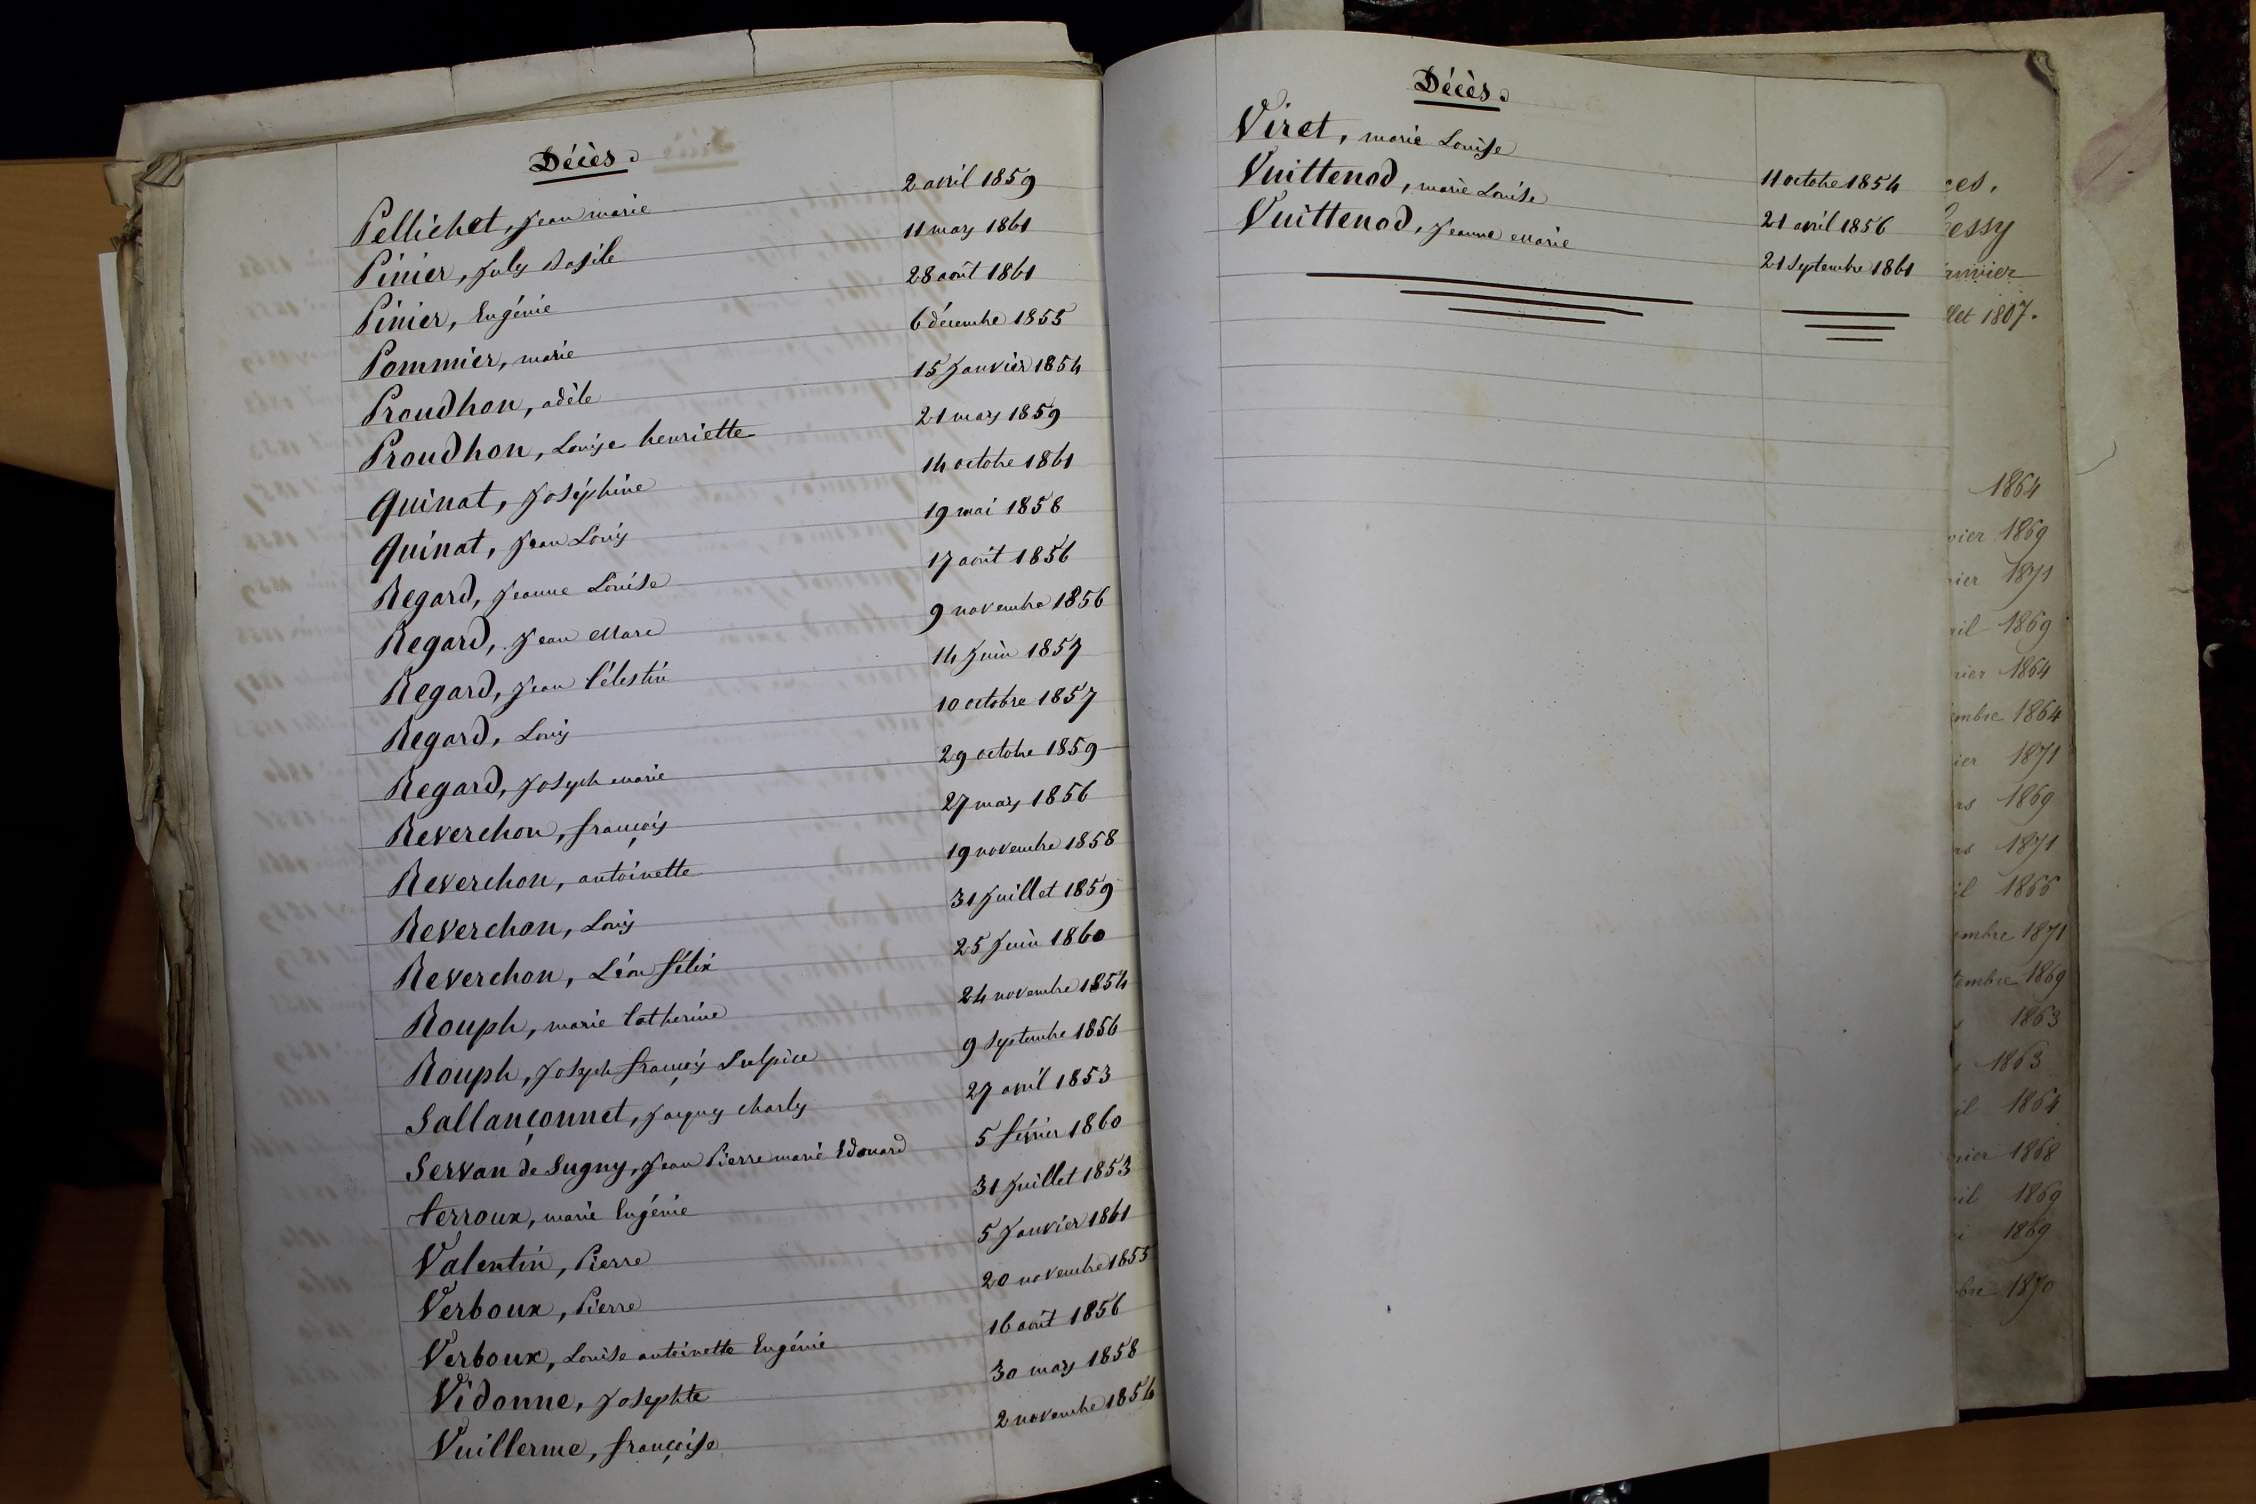 Décès.
Pellichet, Jean marie 2 avril 1859
Pinier, Jules Basile 11 mars 1861
Pinier, Eugénie 28 août 1861
Pommier, marie 6 décembre 1855
Proudhon, adèle 15 Janvier 1854
Proudhon, Louise henriette 21 mars 1859
Quinat, Joséphine 14 octobre 1861
Quinat, Jean Louis 19 mai 1858
Regard, Jeanne Louise 17 août 1856
Regard, Jean Marc 9 novembre 1856
Regard, Jean Célestin 14 Juin 1857
Regard, Louis 10 octobre 1857
Regard, Joseph marie 29 octobre 1859
Reverchon, françois 27 mars 1856
Reverchon, antoinette 19 novembre 1858
Reverchon, Louis 31 Juillet 1859
Reverchon, Léon félix 25 Juin 1860
Rouph, marie Catherine 24 novembre 1854
Rouph, Joseph françois Sulpice 9 Septembre 1856
Sallançonnet, Jacques Charles 27 avril 1853
Servan de Sugny, Jean Pierre marie Edouard 5 février 1860
terroux, marie Eugénie 31 Juillet 1853
Valentin, Pierre 5 Janvier 1861
Verboux, Pierre 20 novembre 1855
Verboux, Louise antoinette Eugénie 16 août 1856
Vidonne, Josephte 30 mars 1858
Vuillerme, françoise 2 novembre 1854
Décès.
Viret, marie Louise 11 octobre 1854
Vuittenod, marie Louise 21 avril 1856
Vuittenod, Jeanne Marie 21 Septembre 1861
1807.
1864
1869
1871
1869
1864
1864
1871
1869
1871
1866
1871
1869
1863
1863
1864
1868
1869
1869
1870